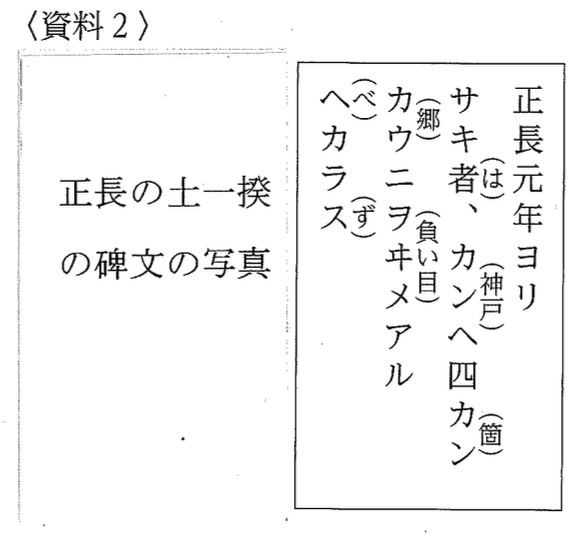 〈資料２〉
正長元年ヨリ
サキ者(は)、カンヘ(神戸)四カン(箇)
カウ(郷)ニヲヰメ(負い目)アル
ヘ(べ)カラス(ず)
正長の土一揆
の碑文の写真